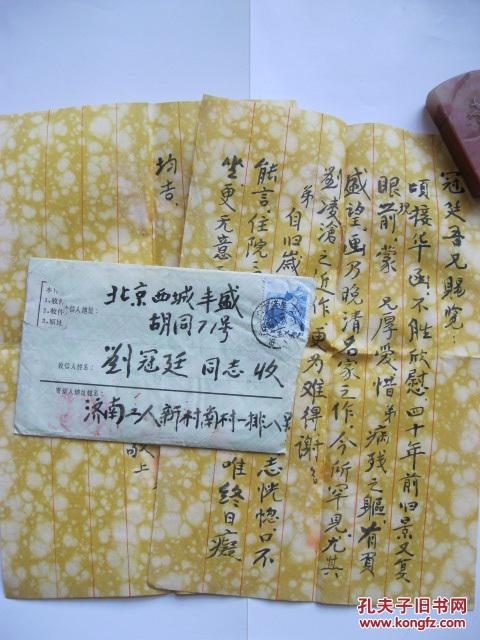 冠廷吾兄赐览：
顷接华函不胜欣慰，四十年前旧景又复
现眼前，蒙 兄厚爱惜弟病残之躯，有負
盛望，画乃晚清名家之作，今所罕見，尤其
劉凌滄之近作，更为难得，谢谢
弟自归
能言，住院之 志恍惚口不
坐更无意 唯終日癡
均吉。
上
北京西城丰盛
胡同71号
收信人姓名：
劉冠廷 同志 收
寄信人地址姓名：
济南工人新村南村一排八号
孔夫子旧书网
www.kongfz.com